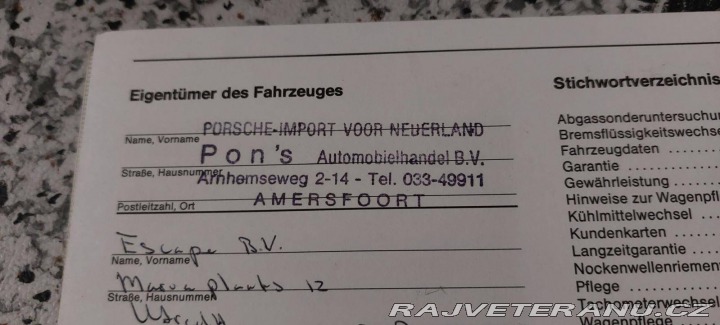 Eigentümer des Fahrzeuges
PORSCHE-IMPORT VOOR NEUERLAND
Name, Vorname
Pon's Automobielhandel B.V.
Straße, Hausnummer
Arnhemseweg 2-14 - Tel. 033-49911
AMERSFOORT
Postleitzahl, Ort
Escape B.V.
Name, Vorname
12
Straße, Hausnummer
Stichwortverzeichnis
Abgassonderuntersuchu
Bremsflüssigkeitswechse
Fahrzeugdaten
Garantie
Gewährleistung
Hinweise zur Wagenpfl
Kühlmittelwechsel
Kundenkarten
Langzeitgarantie
Nockenwellenriemen
Pflege
Tachometerwechsel
Wagenpflege
RAJVETERANU.CZ